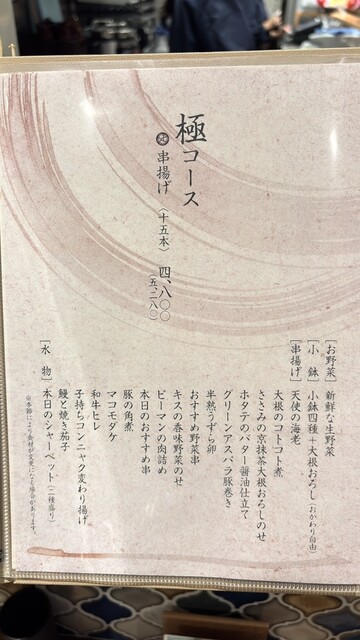 極コース
串揚げ（十五本） 四、八〇〇
（五、二八〇）
［お野菜］ 新鮮な生野菜
［小 鉢］ 小鉢四種＋大根おろし（おかわり自由）
［串揚げ］ 天使の海老
大根のコトコト煮
ささみの京抹茶大根おろしのせ
ホタテのバター醤油仕立て
グリーンアスパラ豚巻き
半熟うずら卵
おすすめ野菜串
キスの香味野菜のせ
ピーマンの肉詰め
本日のおすすめ串
豚の角煮
マコモダケ
和牛ヒレ
子持ちコンニャク変わり揚げ
鰻と焼き茄子
［水 物］ 本日のシャーベット（二種盛り）
※季節により食材が変更になる場合があります。